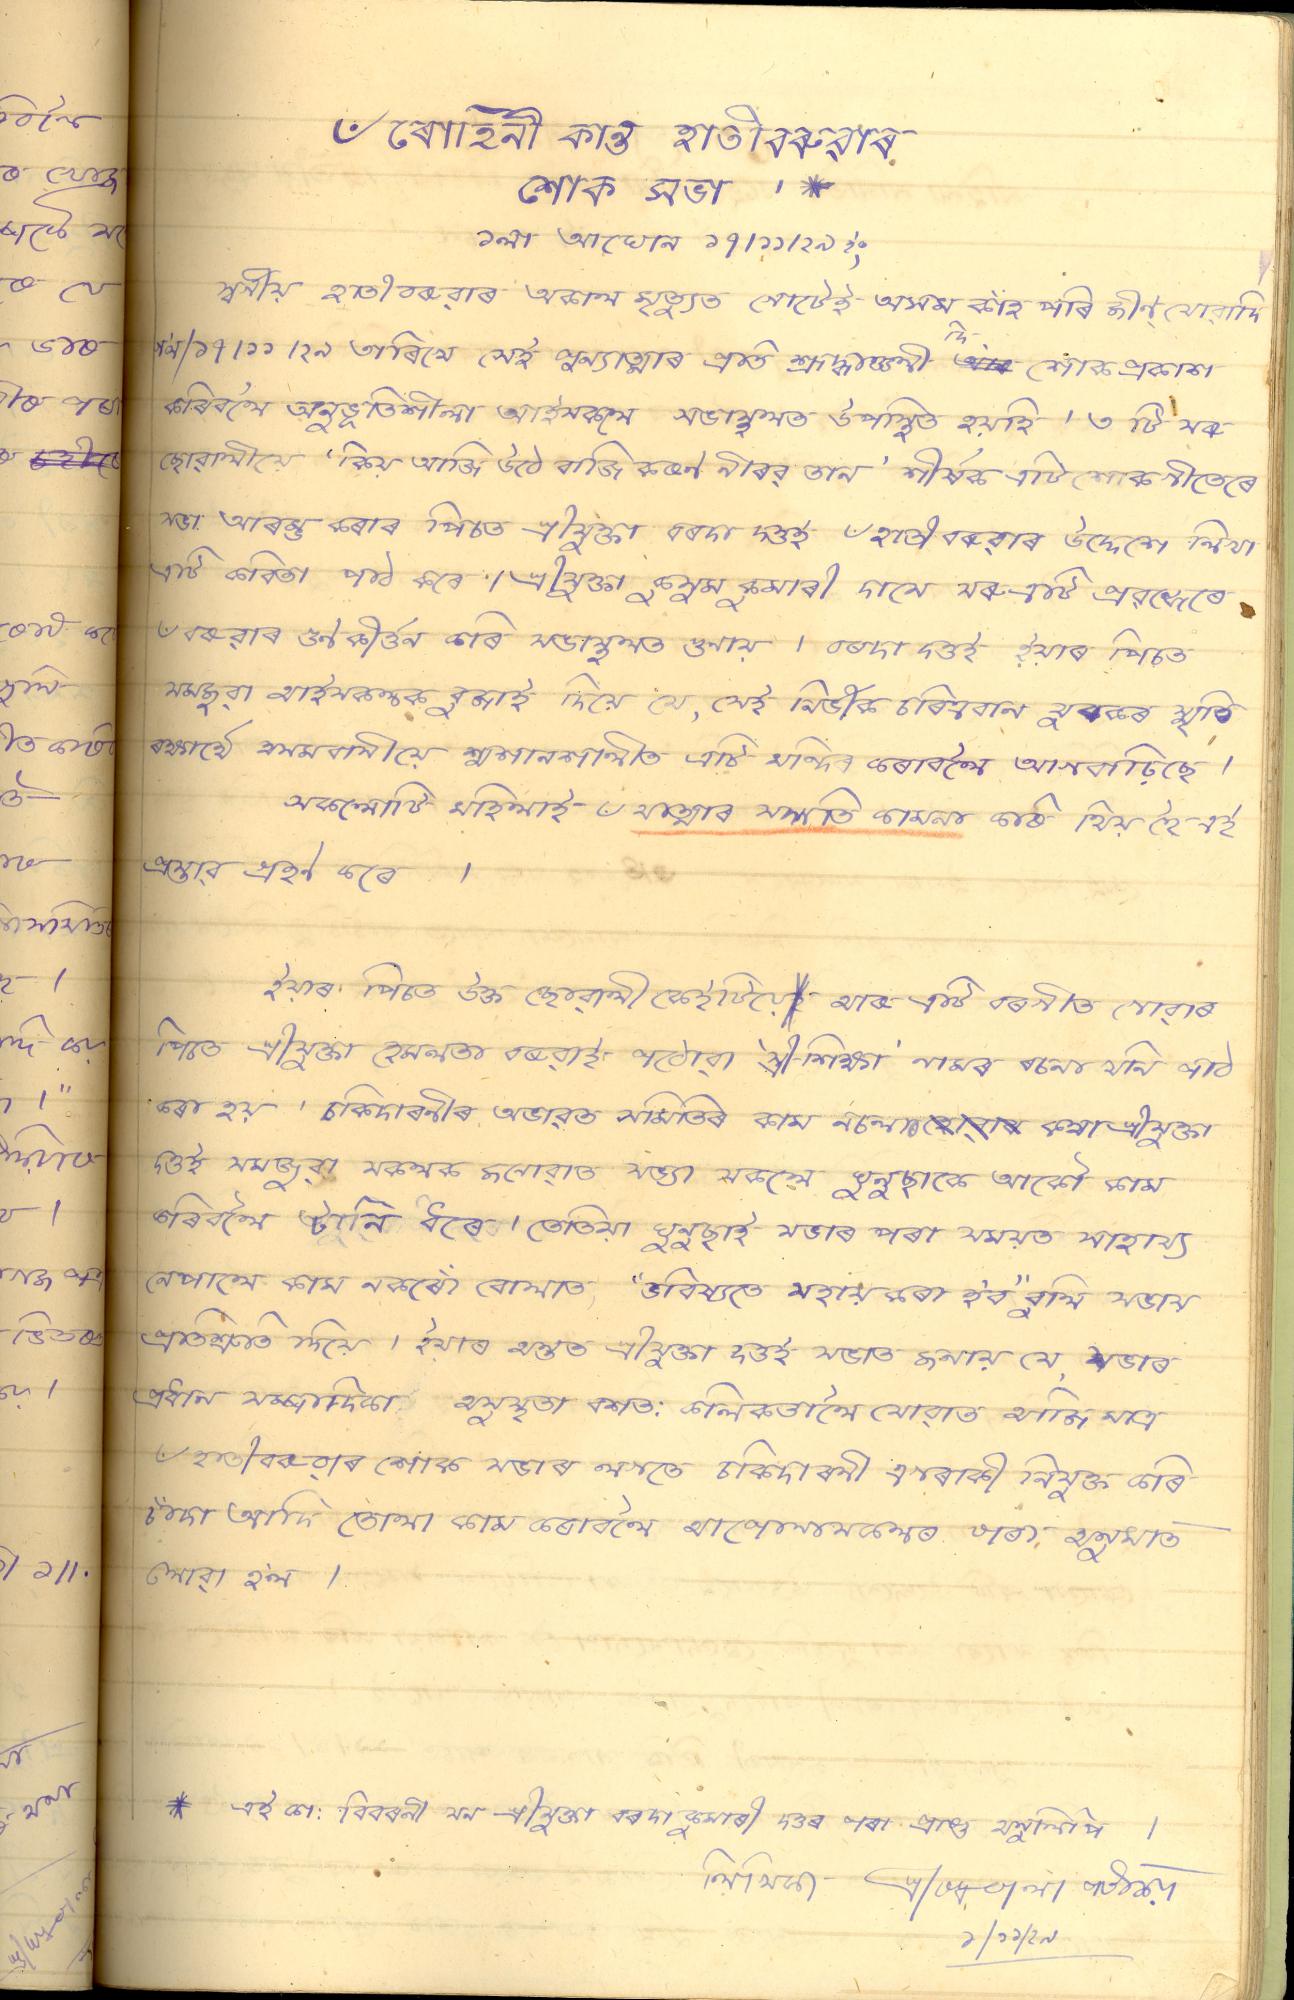 ৺ ৰোহিনী কান্ত হাতীবৰুৱাৰ
শোক সভা । *
১লা আঘোন ১৭/১১/২৯ ইং
স্বৰ্গীয় হাতীবৰুৱাৰ অকাল মৃত্যুত গোটেই অসম কঁহি পৰি জীণ যোৱাদি
১৭/১১/২৯ তাৰিখে সেই পুন্যাত্মাৰ প্ৰতি শ্ৰদ্ধাঞ্জলী দি শোক প্ৰকাশ
কৰিবলৈ অনুভূতিশীলা আইসকল সভাস্থলত উপস্থিত হয়হি । ৩ টি সৰু
ছোৱালীয়ে 'কিয় আজি উঠে বাজি কৰুণ নীৰৱ তান' শীৰ্ষক এটি শোক গীতেৰে
সভা আৰম্ভ কৰাৰ পিচত শ্ৰীযুক্তা বৰদা দত্তই ৺হাতীবৰুৱাৰ উদ্দেশে লিখা
এটি কবিতা পাঠ কৰে । শ্ৰীযুক্তা কুসুম কুমাৰী দাসে সৰু এটি প্ৰৱন্ধেৰে
৺বৰুৱাৰ গুণকীৰ্ত্তন কৰি সভাস্থলত শুনায় । বৰদা দত্তই ইয়াৰ পিচত
সমজুৱা আইসকলক বুজাই দিয়ে যে, সেই নিৰ্ভীক চৰিত্ৰবান যুবকৰ স্মৃতি
ৰক্ষাৰ্থে অসমবাসীয়ে শ্মশানশালীত এটি মন্দিৰ কৰাবলৈ আগবাঢ়িছে ।
সকলোটি মহিলাই ৺আত্মাৰ সদ্গতি কামনা কৰি থিয় হৈ এই
প্ৰস্তাৱ গ্ৰহণ কৰে ।
ইয়াৰ পিচত উক্ত ছোৱালী কেইটিয়ে আৰু এটি বৰগীত গোৱাৰ
পিচত শ্ৰীযুক্তা হেমলতা বৰুৱাই পঠোৱা 'স্ত্ৰী-শিক্ষা' নামৰ ৰচনা খনি পাঠ
কৰা হয় । চকিদাৰনীৰ অভাৱত সমিতিৰ কাম নচলা কথা শ্ৰীযুক্তা
দত্তই সমজুৱা সকলক জনোৱাত সভ্যা সকলে ঘুনুছাকে আকৌ কাম
কৰিবলৈ টানি ধৰে । তেতিয়া ঘুনুছাই সভাৰ পৰা সময়ত সাহায্য
নেপালে কাম নকৰোঁ বোলাত, "ভবিষ্যতে সহায় কৰা হ'ব" বুলি সভায়
প্ৰতিশ্ৰুতি দিয়ে । ইয়াৰ অন্তত শ্ৰীযুক্তা দত্তই সভাত জনায় যে, সভাৰ
প্ৰধান সম্পাদিকা অসুস্থতা বশত: কলিকতালৈ যোৱাত আজি মাত্ৰ
৺হাতীবৰুৱাৰ শোক সভাৰ লগতে চকিদাৰনী এগৰাকী নিযুক্ত কৰি
চাঁদা আদি তোলা কাম কৰাবলৈ আপোনাসকলৰ পৰা অনুমতি
লোৱা হল ।
* এই কা: বিবৰনী খন শ্ৰীযুক্তা বৰদা কুমাৰী দত্তৰ পৰা প্ৰাপ্ত অনুলিপি ।
লিখিকা
১/১১/২৯